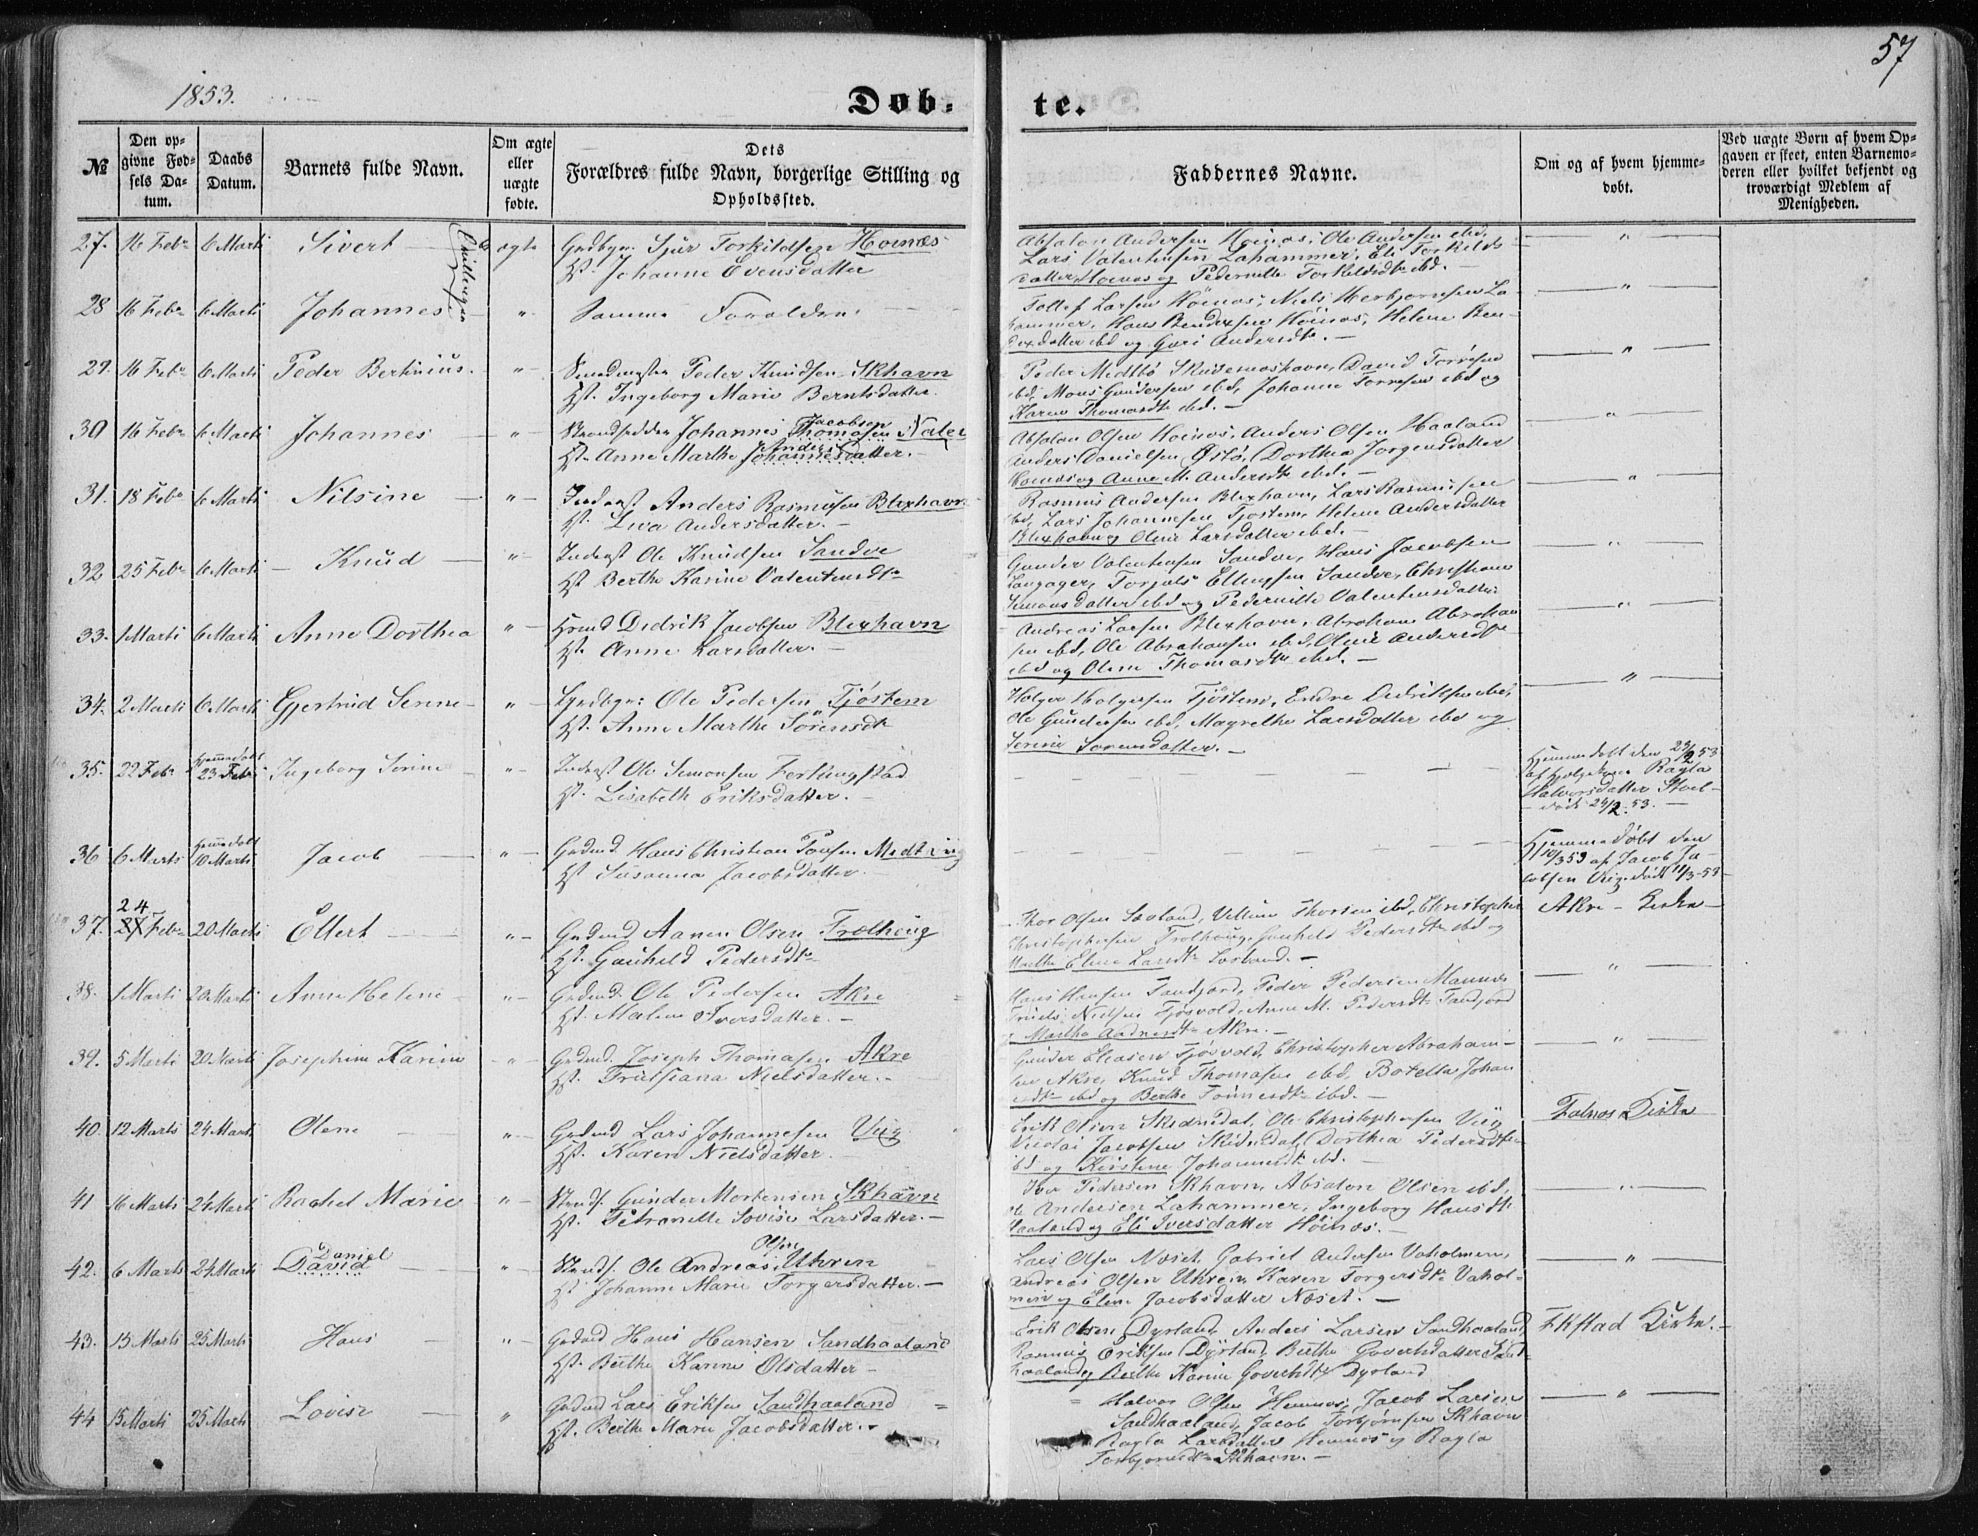 57
1853.
Døb-
te.
№
Den op-
givne Fød-
sels Da-
tum.
Daabs
Datum.
Barnets fulde Navn.
Om ægte
eller
uægte
fødte.
Dets
Forældres fulde Navn, borgerlige Stilling og
Opholdssted.
Faddernes Navne.
Om og af hvem hjemme-
døbt.
Ved uægte Børn af hvem Op-
gaven er skeet, enten Barnemo-
deren eller hvilket bekjendt og
troværdigt Medlem af
Menigheden.
27. 16 Febr 6 Marti Sivert ægte Grdbgr. Sjur Torkildsen Hoinæs
Hst. Johanne Evensdatter
Absalon Andersen Hoinæs, Ole Andersen ibd,
Lars Valentinsen Lahammer, Eli Torkilds
datter Hoinæs og Pedernille Torkildsdtr ibd. —
Tvillinger
28 16 Febr 6 Marti Johannes " Samme Forældre
Tollef Larsen Höinæs, Niels Herbjørnsen La
hammer, Hans Bendixsen Höinæs, Helene Ben-
dixdatter ibd og Guri Andersdtr. —
29. 16 Febr 6 Marti Peder Bertinius. " Peder Knudsen Skhavn
Hst. Ingeborg Marie Berntsdatter.
Peder Medbö Skudesneshavn, David Torresen
ibd, Mons Gundersen ibd, Johanne Torresen ibd og
Karen Thomasdtr ibd. —
30 16 Febr 6 Marti Johannes " Strandsidder Johannes Jacobsen Thomasen
Hst. Anne Marthe Anders Johannesdatter. —
Absalon Olsen Hoinæs, Anders Olsen Haaland
Anders Danielsen Østø, Dorthea Jorgensdatter
Hoinæs og Anne M. Andersdtr ibd. —
31. 18 Febr 6 Marti Nilsine " Inderst Anders Rasmusen Blexhavn
Hst. Lisa Andersdatter. —
Rasmus Andersen Blexhavn, Lars Rasmusen
ibd, Lars Johannesen Tjostem, Helene Andersdatter
Blexhavn og Oline Larsdatter ibd. —
32 25 Febr 6 Marti Knud " Inderst Ole Knudsen Sandve
Hst Berthe Karine Valentinsdtr
Gunder Valentinsen Sandve, Hans Jacobsen
Langager, Torjuls Ellingsen Sandve, Christiane
Simonsdatter ibd og Pedernille Valentinsdatter
33. 1 Marti 6 Marti Anne Dorthea " Hmd Dedrik Jacobsen Blexhavn
Hst. Anne Larsdatter. —
Andreas Larsen Blexhavn, Abraham Abraham
sen ibd, Ole Abrahamsen ibd, Oline Andersdtr
ibd og Oline Thomasdtr ibd. —
34. 2 Marti 6 Marti Gjertrud Serine " Grdbgr: Ole Pedersen Tjöstem
Hst. Anne Marthe Sörensdtr
Holger Holgersen Tjöstem, Endre Dedriksen ibd,
Ole Gundersen ibd, Magrethe Larsdatter ibd og
Serine Sorensdatter. —
35. 22 Febr Hjemmedöbt 23 Febr Ingeborg Serine " Inderst Ole Simonsen Ferkingstad
Hst. Lisabeth Eriksdatter. —
Hjemmedöbt den 23/2 53
af Hjelpekone Ragla
Halvorsdatter Stol-
död 24/2. 53. —
36 6 Marts Hjemmedöbt 10 Marti Jacob " Grdmd. Hans Christian Medhoug
Hst Susanna Jacobsdatter. —
Hjemmedöbt den
10/3 53 af Jacob Ja
cobsen Vig. död 11/3-53
37. 24 27 Febr 20 Marti Ellert " Grdmd Aanen Olsen Trolhoug
Hst. Gunhild Pedersdtr
Thor Olsen Sæland, Villum Thorsen ibd, Christopher
Christophersen Trolhoug, Gunhild Pedersdtr ibd og
Marthe Eline Larsdtr Sæland. —
Akre - Kirke
38. 1 Marti 20 Marti Anne Helene " Grdmd. Ole Pedersen Akre
Hst. Malene Iversdatter. —
Hans Hansen Tandjord, Peder Pedersen Mannes
Truels Nielsen Tjösvold, Anne M. Pedersdtr Tandjord
og Marthe Aadnesdtr Akre. —
39. 5 Marti 20 Marti Josephine Karine " Grdmd. Joseph Thomasen Akre
Hst. Nielsdatter. —
Gunder Eliasen Tjösvold, Christopher Abraham-
sen Akre, Knud Thomasen ibd, Botella Johan
ibd og Berthe Tönnesdtr ibd. —
40. 12 Marti 24 Marti Olene " Grdmd Lars Johannesen Viig
Hst. Karen Nielsdatter. —
Erik Olsen Skidnedal, Ole Christophersen Viig
Nicolai Jacobsen Skidnedal, Dorthea Pedersdtr
ibd og Kirstene Johannesdtr ibd. —
Falnæs Kirke
41 16 Marti 24 Marti Rachel Marie " Strads. Gunder Mortensen Skhavn
Hst. Petronelle Lovise Larsdatter. —
Iver Pedersen Skhavn, Absalon Olsen ibd,
Andersen Lahammer, Ingeborg Hansdtr
Haaland og Eli Iversdatter Höinæs. —
42. 6 Marti 24 Marti Daniel David " Strads. Ole Andreas Olsen Uhren
Hst Johanne Marie Torgersdatter. —
Lars Olsen Næset, Gabriel Andersen Vaholmen,
Andreas Olsen Uhren, Karen Torgersdtr Vahol-
men og Eline Jacobsdatter Næset. —
43. 15 Marti 25 Marti Hans " Grdmd Hans Hansen Sandhaaland
Hst. Berthe Karine Olsdatter —
Erik Olsen Dyrland, Anders Larsen Sandhaaland
Rasmus Eriksen Dyrland, Berthe Govertsdatter Sand-
haaland og Berthe Karine Govertsdtr Dyrland
Fkstad Kirke. —
44 15 Marti 25 Marti Lovise " Grdmd Lars Eriksen Sandhaaland
Hst. Berthe Marie Jacobsdatter. —
Halvor Olsen Hemnes, Jacob Larsen
Sandhaaland, Jacob Torbjörnsen Skhavn
Ragla Larsdatter Hemnes og Ragla
Torbjornsdtr Skhavn. —